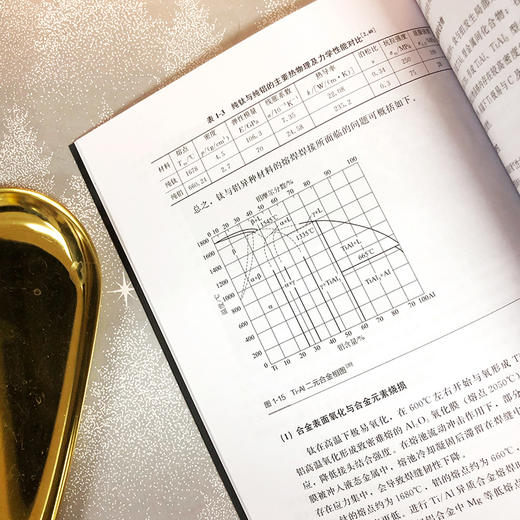 表 1-3 纯钛与纯铝的主要热物理及力学性能对比[2,40]
材料 熔点 Tm/℃ 密度 ρ/(g/cm³) 弹性模量 E/GPa 线胀系数 α/10⁻⁶K⁻¹ 热导率 k/[W/(m·K)] 泊松比 抗拉强度 /MPa
纯钛 1678 4.5 106.3 7.35 22.08 0.34 250
纯铝 660.24 2.7 70 24.58 235.2 0.3 75
总之，钛与铝异种材料的熔焊焊接所面临的问题可概括如下。
铝摩尔分数/%
0 10 20 30 40 50 60 70 80 90 100
1800
1600
1400
1200
1000
800
600
400
200
0
温度/℃
β+L
1545℃
α+L
γ+L
1335℃
TiAl+L
665℃
β
α+β
α
α+γ
γ=TiAl
TiAl₃
TiAl₃+Al
Ti 10 20 30 40 50 60 70 80 90 100Al
铝含量/%
图 1-15 Ti-Al 二元合金相图
(1) 合金表面氧化与合金元素烧损
钛在高温下极易氧化，在 600℃ 左右开始与氧形成 T
铝高温氧化形成致密难熔的 Al₂O₃ 氧化膜（熔点 2050℃）
应，降低接头结合强度。在熔池流动冲击作用下，部分
膜被冲入液态金属中，熔池冷却凝固后滞留在焊缝
存在应力集中，会导致焊缝韧性下降。
钛的熔点约为 1680℃，铝的熔点约为 660℃，
更低。进行 Ti/Al 异质合金熔焊
铝合金中 Mg 等低熔点